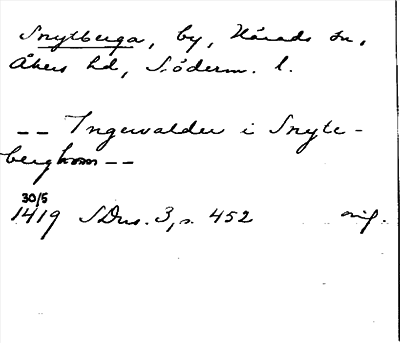 Snytberga, by, Härads sn,
Åkers hd, Söderm. l.
-- Ingevalder i Snyte-
berghom --
30/5
1419 SDns. 3, s. 452 orig.